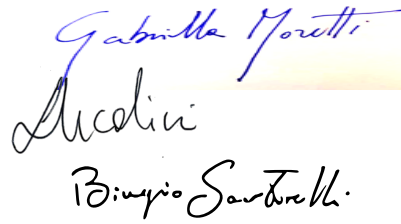 Gabriella Moretti
Biagio Santorelli